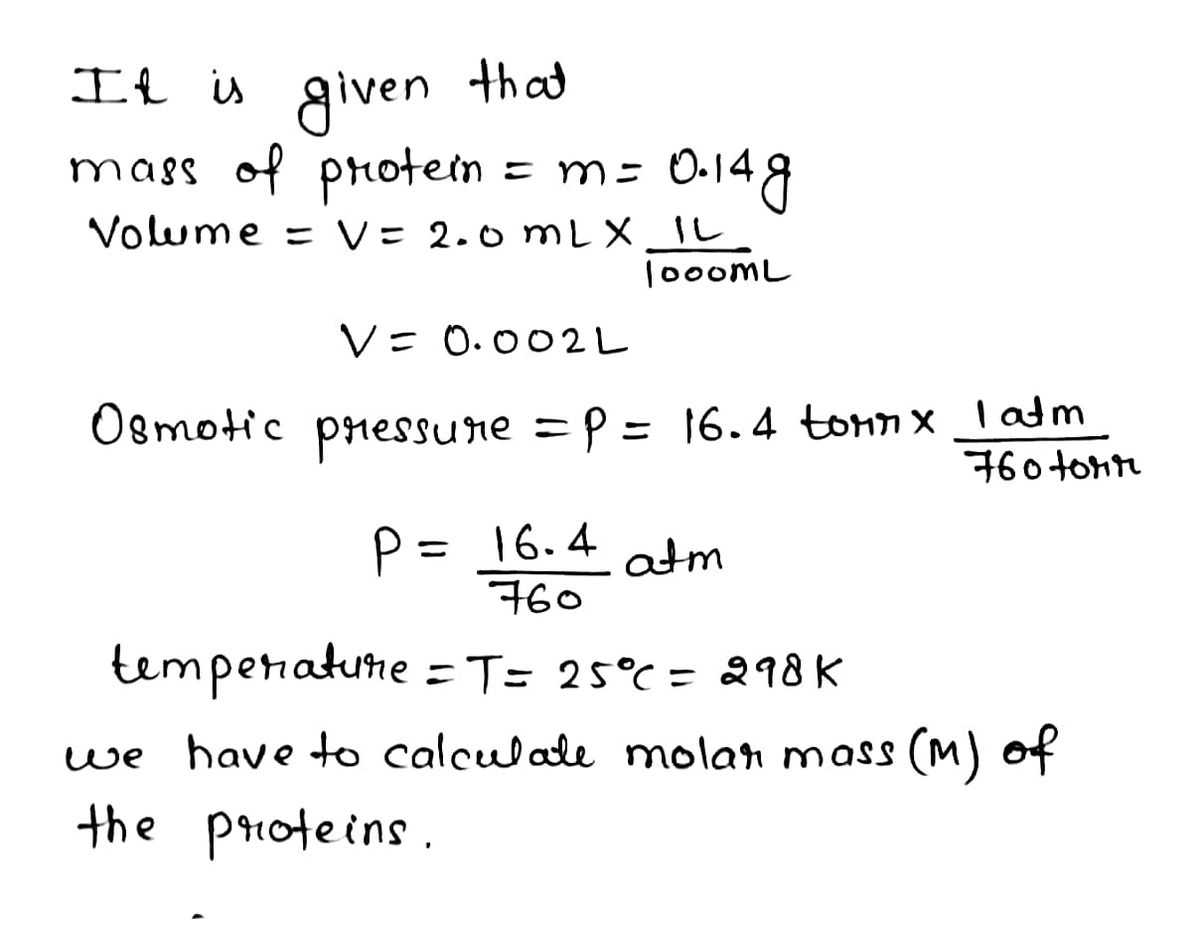 It is given that
mass of protein = m = 0.14g
Volume = V = 2.0 mL X 1L / 1000mL
V = 0.002L
Osmotic pressure = P = 16.4 torr x 1 atm / 760 torr
P = 16.4 / 760 atm
temperature = T = 25°C = 298K
we have to calculate molar mass (M) of
the proteins.